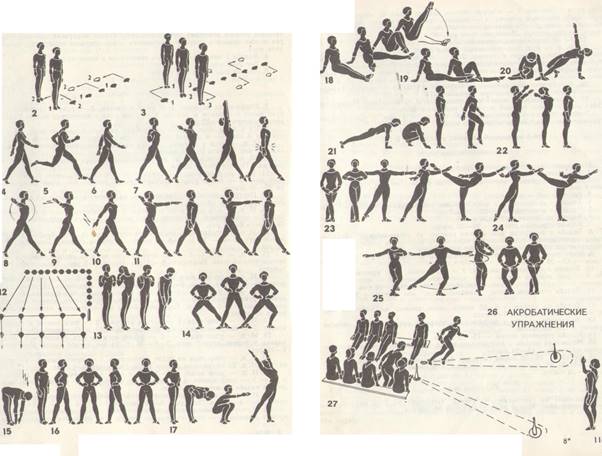 2 3
4 5 6 7
8 9 10 11
12
13 14
15 16 17
18 19 20
21 22
23 24
25
26 АКРОБАТИЧЕСКИЕ
УПРАЖНЕНИЯ
27
8* 11